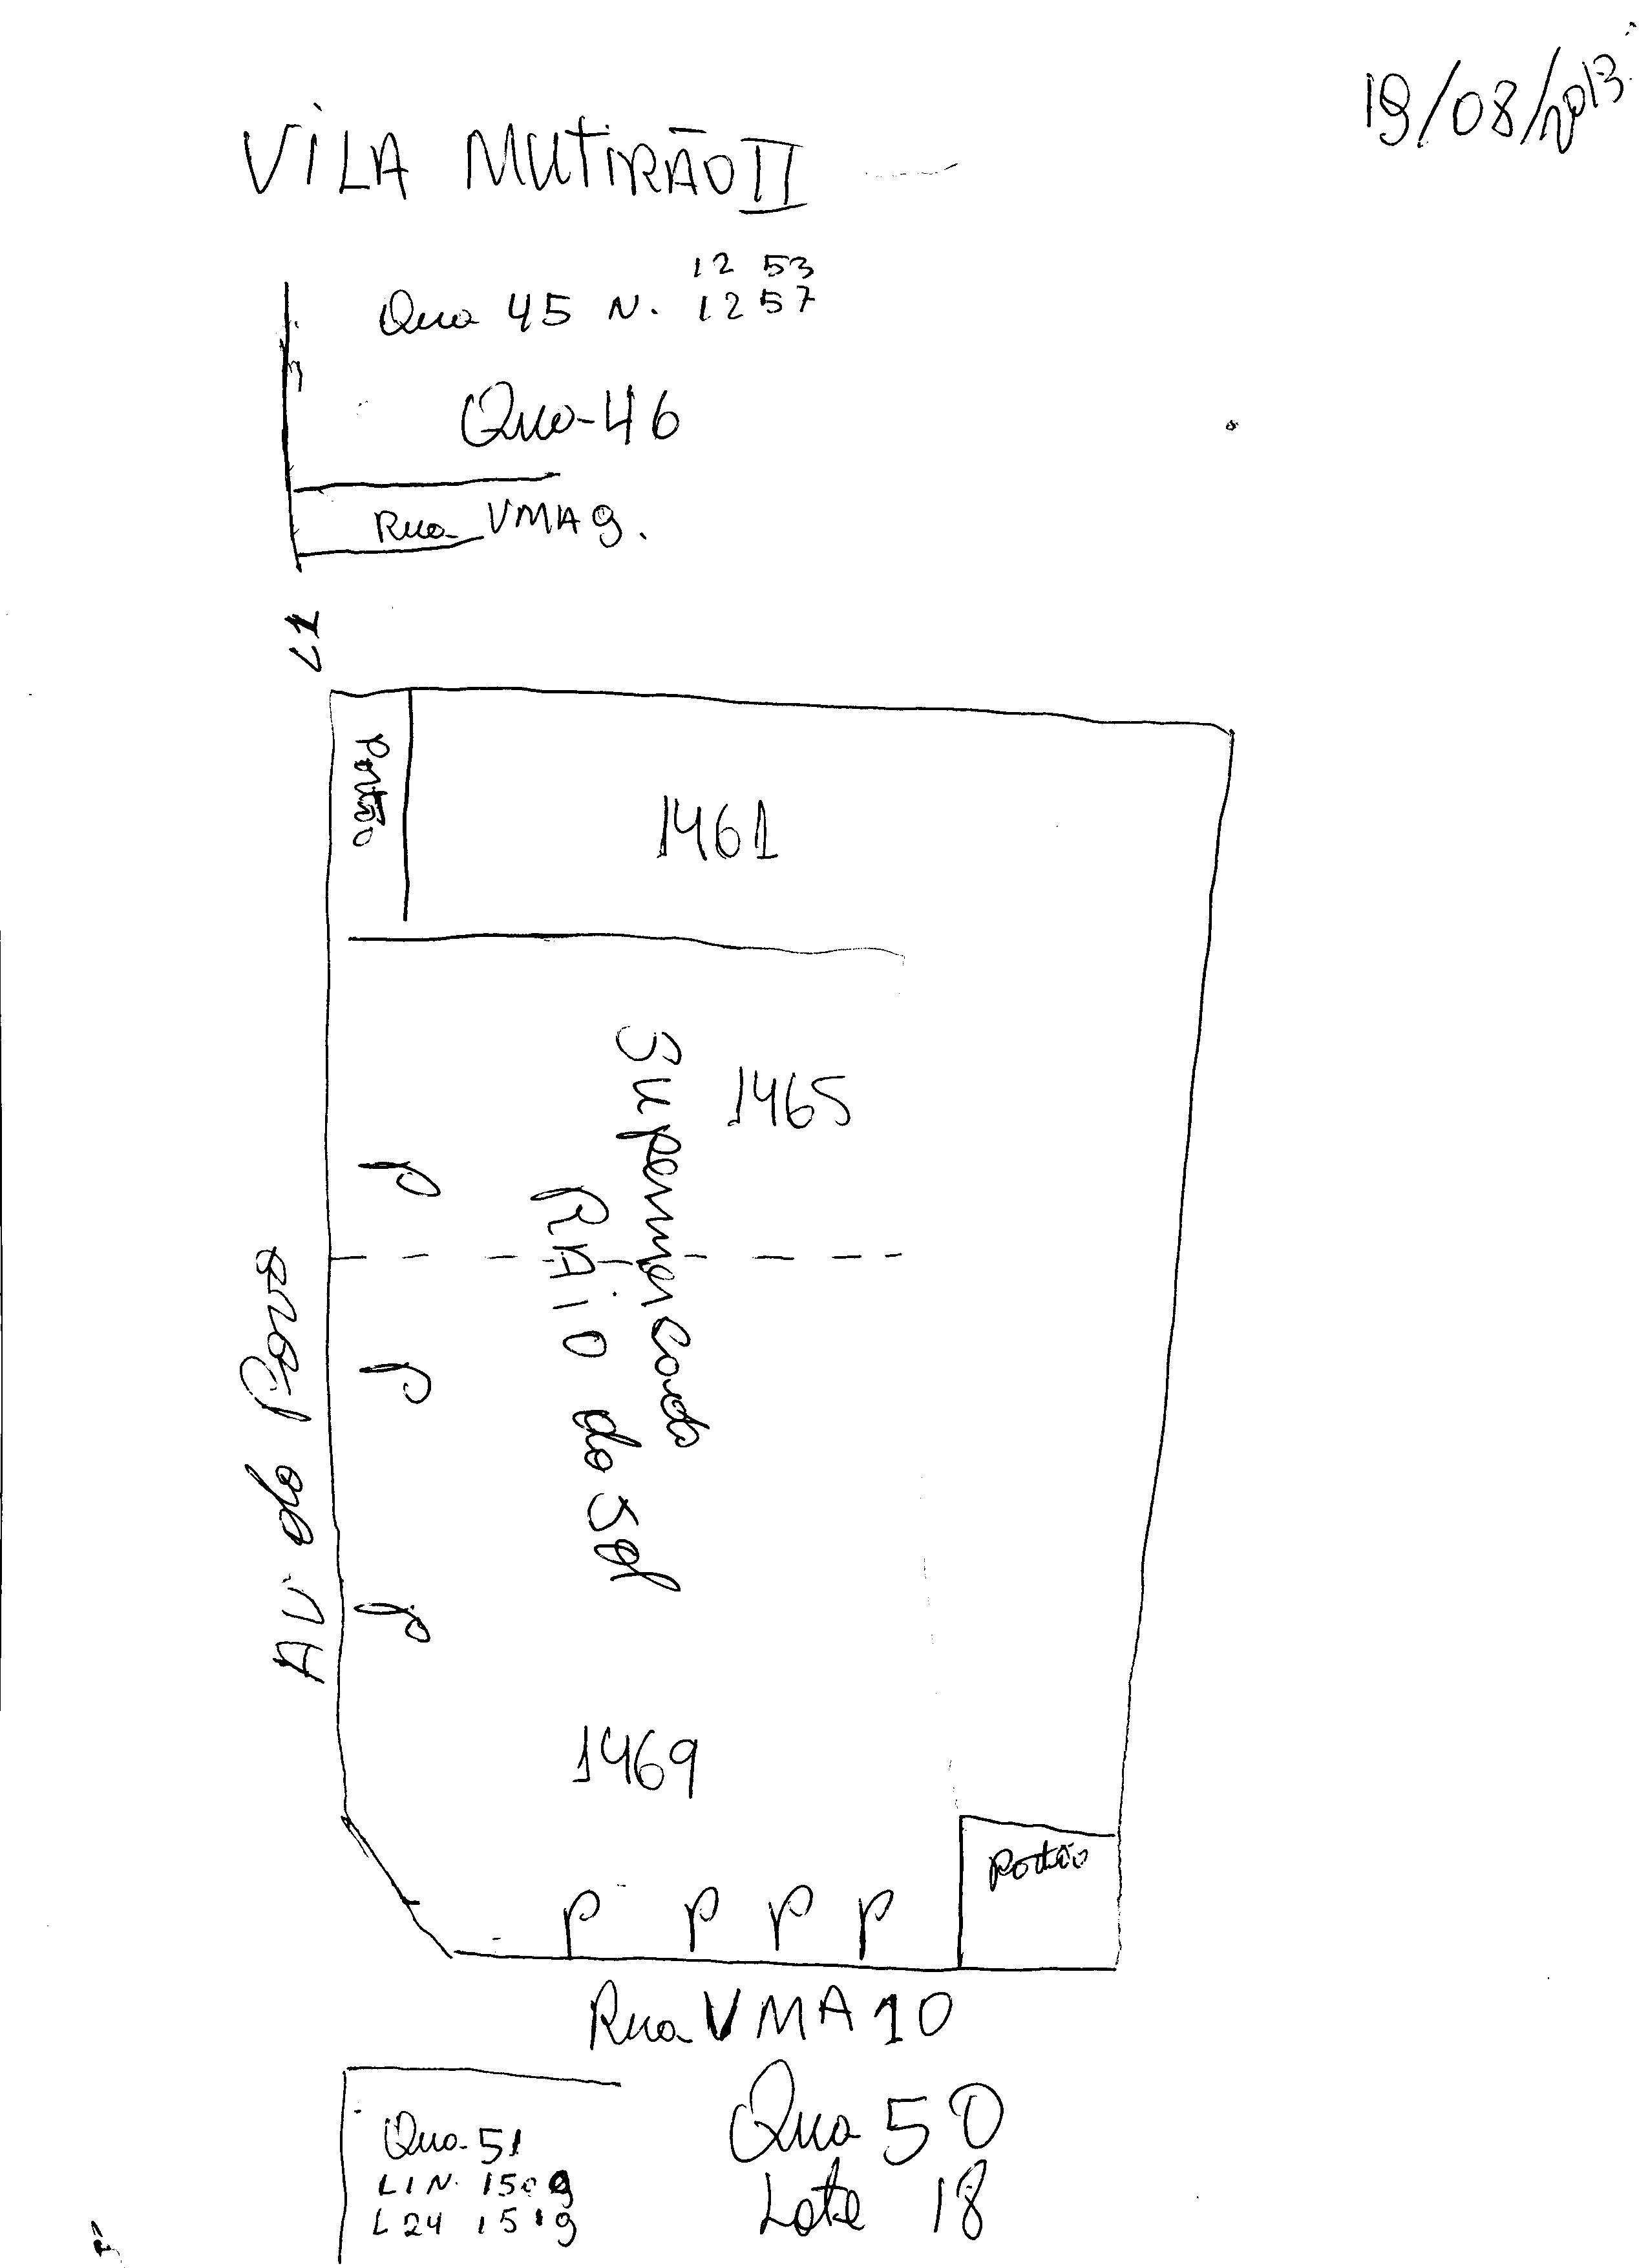 19/08/2013
VILA MUTIRÃO II
12 53
Qua 45 N. 1257
Qua-46
Rua VMA 9.
L1
Portão
1461
1465
Supermercado
RAiO do Sol
P
P
P
Av do Povo
1469
Portão
P P P P
Rua VMA 10
Qua 50
Lote 18
Qua-51
L1N. 1509
L24 1519